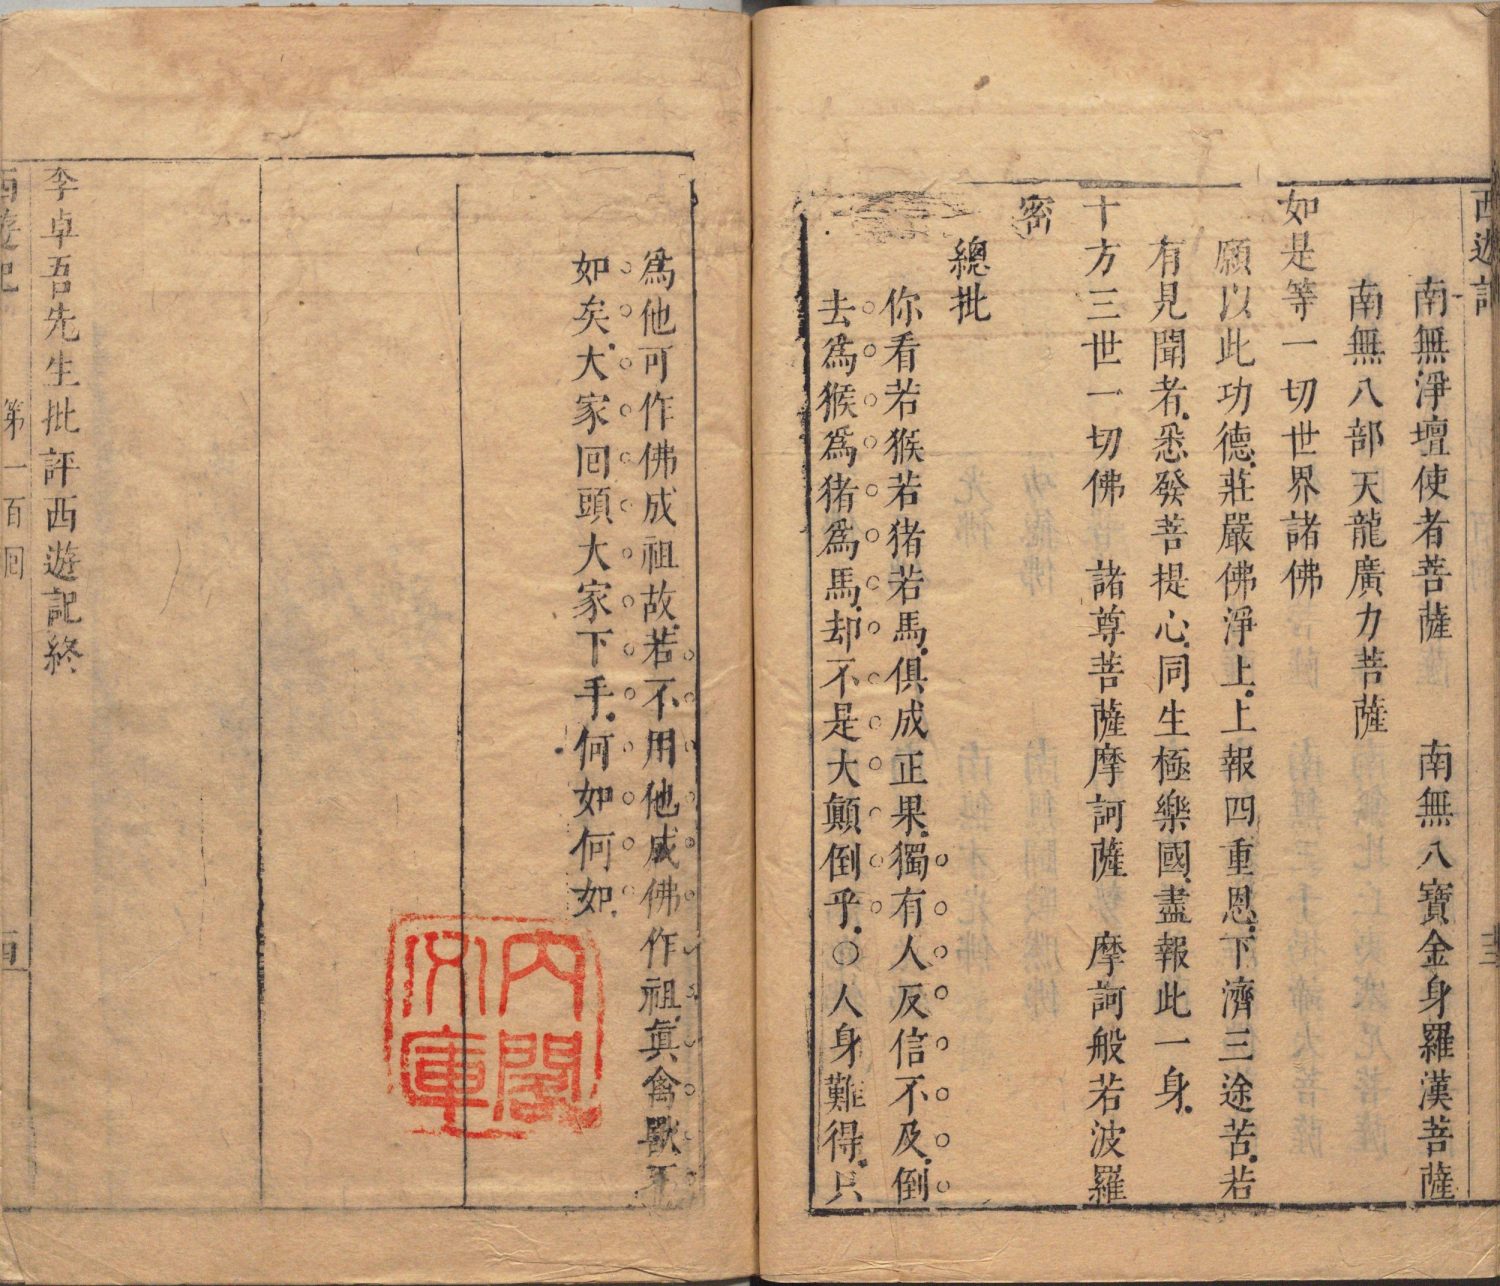 西遊記
南無淨壇使者菩薩　南無八寶金身羅漢菩薩
南無八部天龍廣力菩薩
如是等一切世界諸佛
願以此功德莊嚴佛淨土上報四重恩下濟三途苦若
有見聞者悉發菩提心同生極樂國盡報此一身
十方三世一切佛　諸尊菩薩摩訶薩　摩訶般若波羅
密
總批
你看若猴若猪若馬俱成正果獨有人反信不及倒
去爲猴爲猪爲馬却不是大顛倒乎○人身難得只
爲他可作佛成祖故若不用他成佛作祖眞禽獸不
如矣大家回頭大家下手何如何如
李卓吾先生批評西遊記終
西遊記　第一百回
內閣文庫